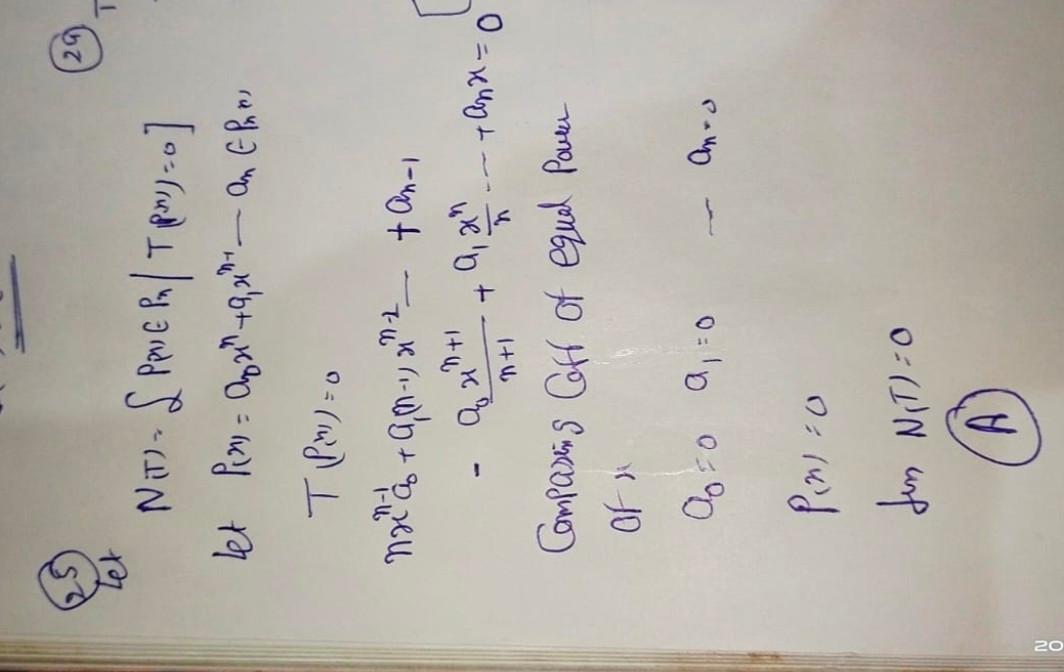 (25)
let
N(T) = { P(x) ∈ Pn / T(P(x)) = 0 ]
let P(x) = a0 x^n + a1 x^{n-1} — an ∈ Pn(x)
T(P(x)) = 0
n x^{n-1} a0 + a1 (n-1) x^{n-2} — + an-1
- a0 x^{n+1}/n+1 + a1 x^n/n --- + an x = 0
Comparing Coff of equal Power
of x
a0 = 0 a1 = 0 — an = 0
P(x) = 0
dim N(T) = 0
(A)
(24)
T
20